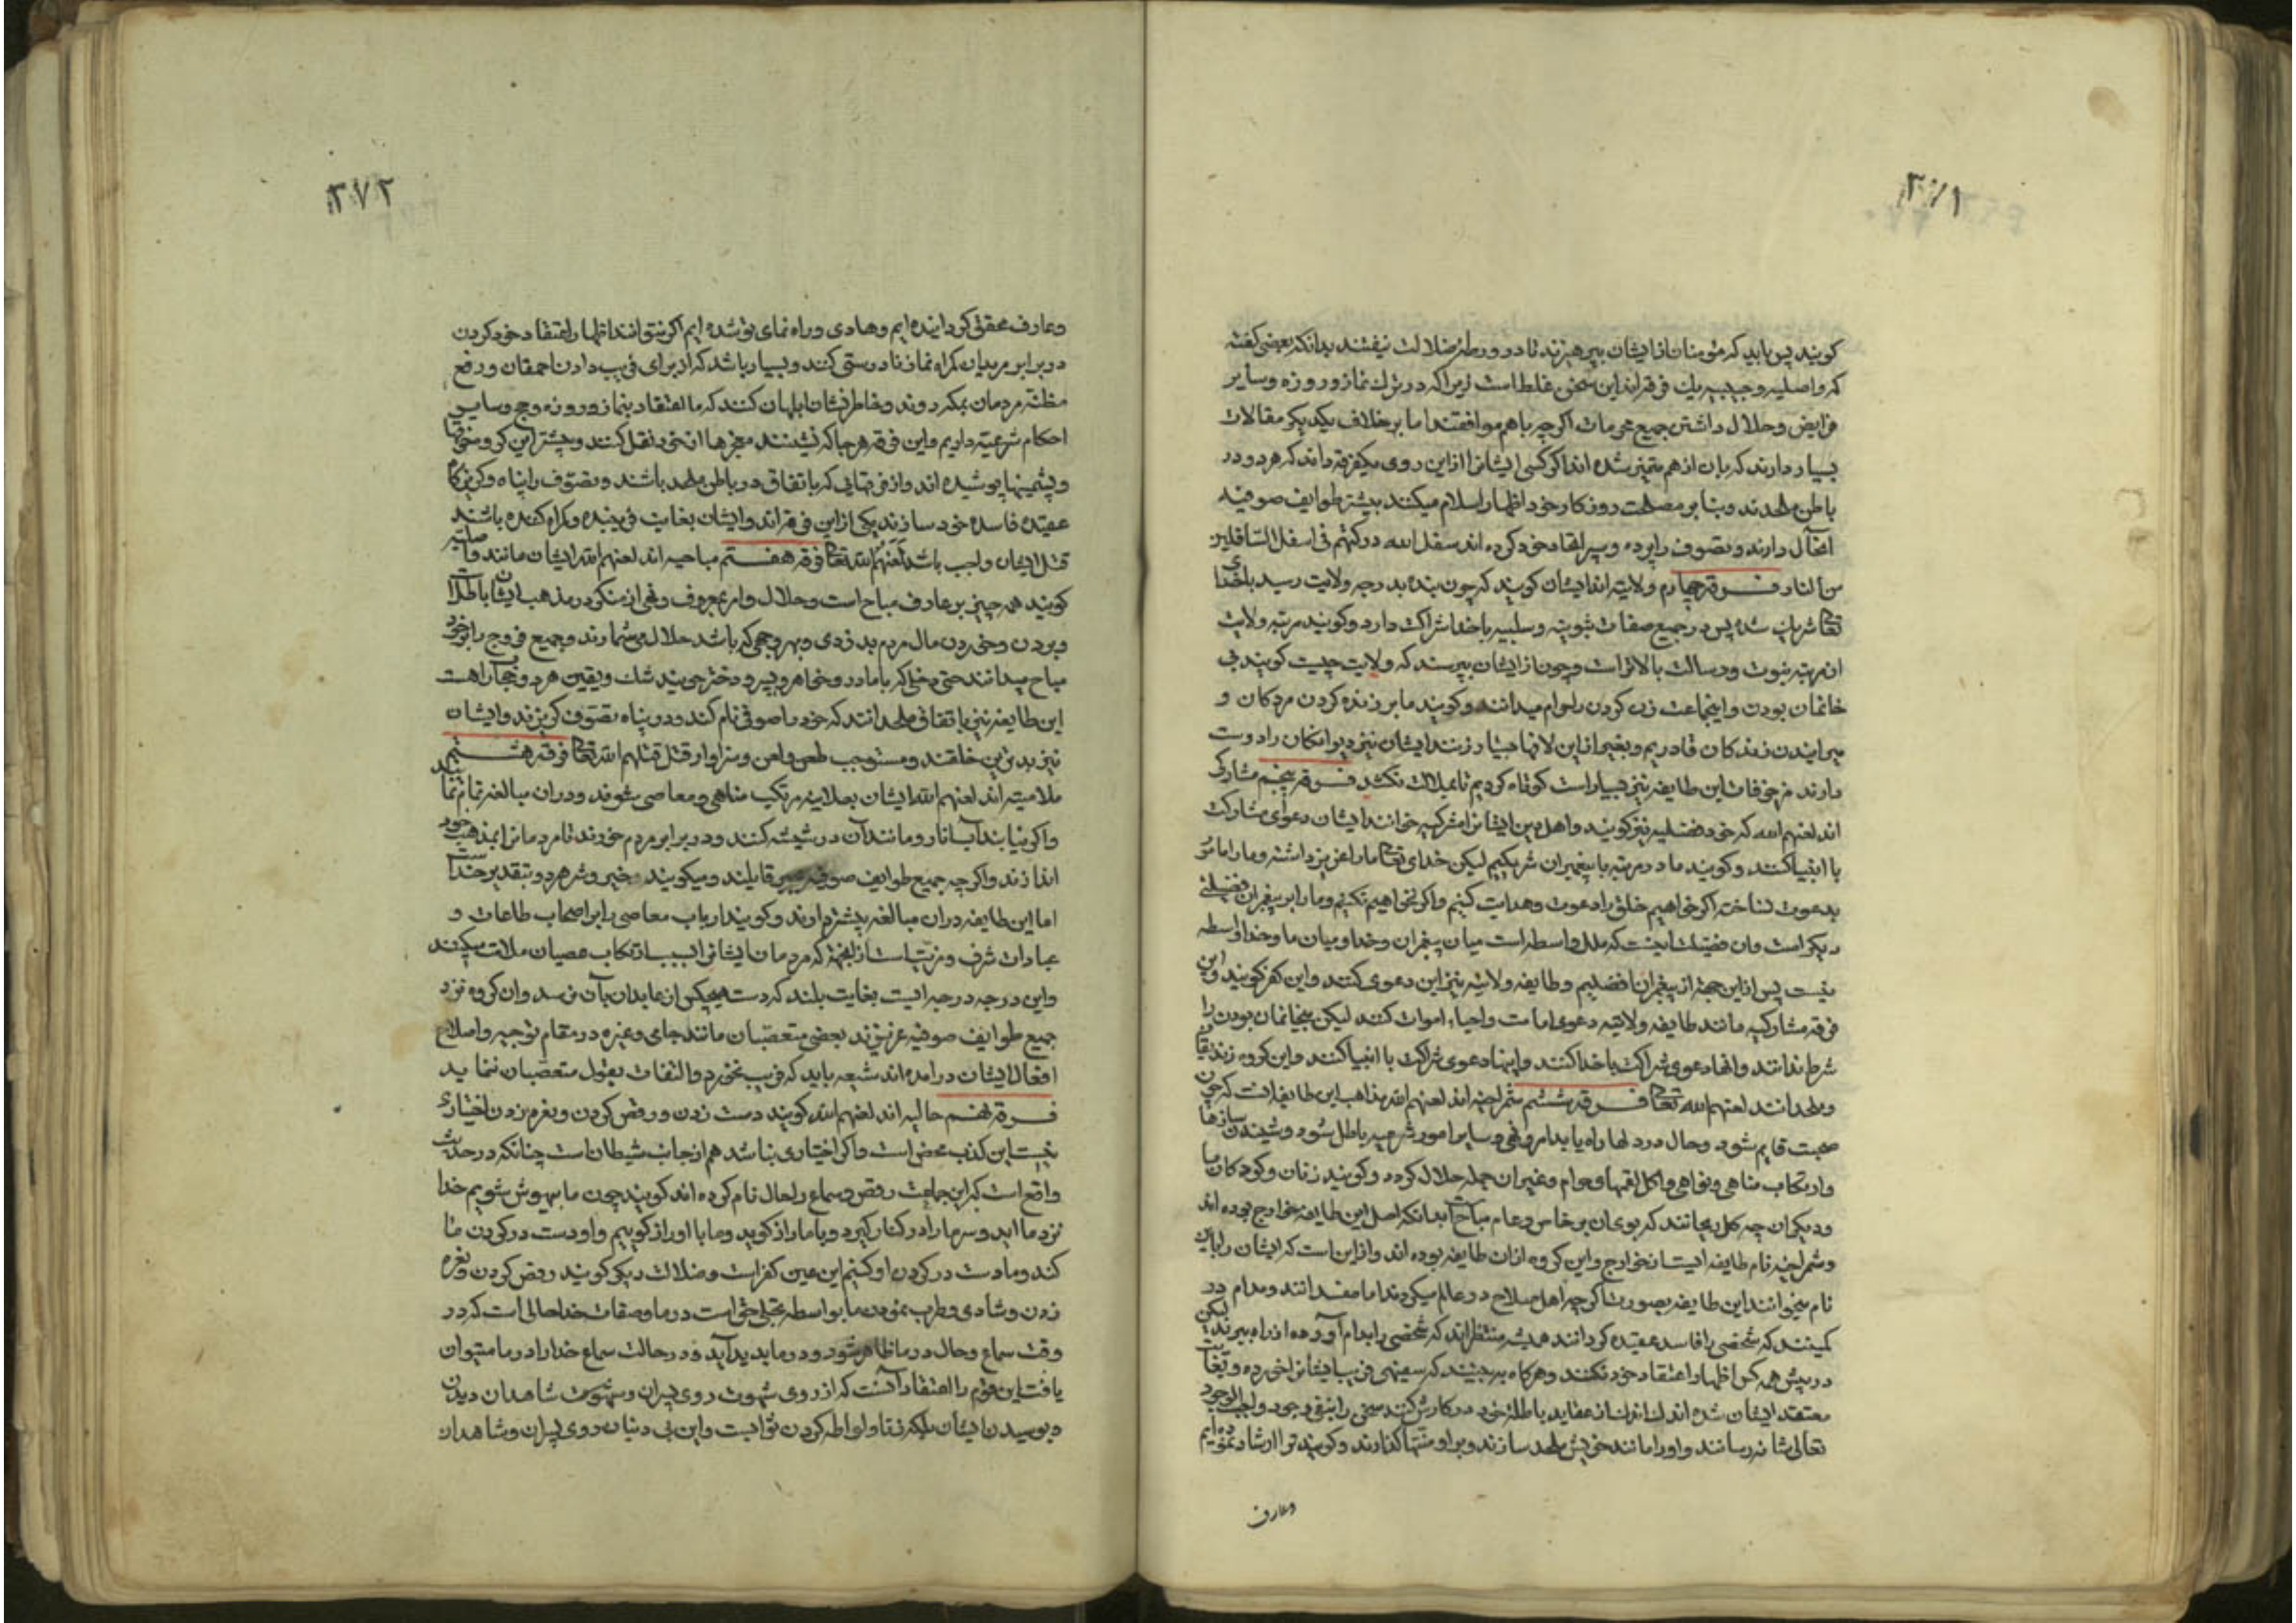 ٣٧١
کویند پس باید که مؤمنان از ایشان بپرهیزند تا در ورطهٔ ضلالت نیفتند بدانکه بعضی کفته
که واصلیه و حبیبیه یک فرقه اند این سخن غلط است زیرا که در ترک نماز و روزه و سایر
فرایض و حلال داشتن جمیع محرمات اکرچه باهم موافقتند اما بر خلاف یکدیکر مقالات
بسیار دارند که بان از هم متمیز شده اند اکر کسی ایشانرا از این روی یکفرقه داند که هر دو در
باطن ملحدند و بنا بر مصلحت روزکار خود اظهار اسلام میکنند بیشتر طوایف صوفیه
این حال دارند و تصوف را پرده و سپر الحاد خود کرده اند سفل الله درکتهم فی اسفل السّافلین
من النار فرقه چهارم ولایتیه اند ایشان کویند که چون بنده بدرجه ولایت رسید با خدای
تعالی شریک شده پس در جمیع صفات ثبوتیه و سلبیه با خدا شراکت دارد و کویند مرتبه ولایت
از مرتبه نبوت و رسالت بالاتر است و چون از ایشان بپرسند که ولایت چیست کویند بی
خانمان بودن و اینجماعت زن کردن را حرام میدانند و کویند ما بر زنده کردن مردکان و
میرانیدن زندکان قادریم و بغیر از این لافها بسیار زنند ایشان نیز دیوانکان را دوست
دارند مزخرفات این طایفه نیز بسیار است کوتاه کردیم تا بملالت نکشد فرقه پنجم مشارکی
اند لعنهم الله که خود فضلیه نیز کویند و اهل دین ایشانرا مشرکیه خوانند ایشان دعوای مشارکت
با انبیا کنند و کویند ما در مرتبه با پیغمبران شریکیم لیکن خدای تعالی ما را عزیز داشته و ما را مامور
بدعوت نساخته اکر خواهیم خلق را دعوت و هدایت کنیم و اکر نخواهیم نکنیم و ما را بر پیغمبران فضیلتی
دیکر است و ان فضیلت اینست که ملک واسطه است میان پیغمبران و خدا و میان ما و خدا واسطه
نیست پس از این جهة از پیغمبران افضلیم و طایفه ولایتیه نیز این دعوی کنند و این کفر کویند و این
فرقه مشارکیه مانند طایفه ولایتیه دعوی امامت و احیاء اموات کنند لیکن بیخانمان بودن را
شرط ندانند و انها دعوی شراکت با خدا کنند و اینها دعوی شراکت با انبیا کنند و این کروه زندیقان
و ملحدانند لعنهم الله تعالی فرقه ششم شمراخیه اند لعنهم الله مذهب این طایفه انست که چون
صحبت قایم شود و حال در دلها راه یابد امر و نهی و سایر امور شرعیه باطل شود و شنیدن سازها
و ارتکاب مناهی و نواهی و اکل لقمها و حرام و غیر ان جمله حلال کردد و کویند زنان و کودکان ما
و دیکران چه کل ریحانند که بوی ان بر خاص و عام مباحست بدانکه اصل این طایفه خوارج بوده اند
و شمراخیه نام طایفه ایست از خوارج و این کروه از ان طایفه بوده اند و از این است که ایشان را بان
نام میخوانند این طایفه بصورت اکرچه اهل صلاح در عالم میکردند اما مفسدانند و مدام در
کمینند که شخصی را فاسد عقیده کردانند همیشه منتظرانند که شخصی را بدام آورده از راه ببرند لیکن
در پیش همه کس اظهار اعتقاد خود نکنند و هرکاه به بینند که سفیهی فریب ایشانرا خورده و بغایت
معتقد ایشان شده اندک اندک از عقاید باطله خود در کارش کنند سخن را بنفی وجود واجب الوجود
تعالی شانه رسانند و او را مانند خویش ملحد سازند و بر او منتها کذارند و کویند ترا ارشاد نموده ایم
وعارف
٣٧٢
وعارف محقق کردانیده ایم و هادی و راه نمای تو شده ایم اکر نتوانند اظهار اعتقاد خود کردن
در برابر مریدان کمراه نماز نادرستی کنند و بسیار باشد که از برای فریب دادن احمقان و رفع
مظنه مردمان بمکه روند و خاطر نشان ابلهان کنند که ما اعتقاد بنماز و روزه و حج و سایر
احکام شرعیه داریم و این فرقه هر جا که نشینند
و پشمینها پوشیده اند و از فرقهایی که باتفاق در باطن ملحد باشند و تصوف را پناه و کریزکاه
عقیده فاسده خود سازند یکی از این فرقه اند و ایشان بغایت فریبنده و کمراه کننده باشند
قتل ایشان واجب باشد لعنهم الله تعالی فرقه هفتم مباحیه اند لعنهم الله ایشان مانند واصلیه
کویند همه چیز بر عارف مباح است و حلال و امر بمعروف و نهی از منکر در مذهب ایشان باطل است
و بردن و خوردن مال مردم بدزدی و بهر وجهی که باشد حلال میشمارند و جمیع فروج را بر خود
مباح میدانند حتی دخلی که با مادر و خواهر و پسر و دختر جویند شک و یقین هر دو
این طایفه نیز باتفاق ملحدانند که خود را صوفی نام کنند و در پناه تصوف کریزند و ایشان
نیز بدترین خلقند و مستوجب طعن و لعن و سزاوار قتل قتلهم الله تعالی فرقه هشتم
ملامتیه اند لعنهم الله ایشان بعلانیه مرتکب مناهی و معاصی شوند و در ان مبالغه تمام نمایند
و اکر نیابند آب انار و مانند آن در شیشه کنند و در برابر مردم خورند تا مردمانرا بمذهب خود
اندازند و اکرچه جمیع طوایف صوفیه قایلند و میکویند خیر و شر هر دو بتقدیر خداست
اما این طایفه در ان مبالغه بیشتر دارند و کویند ارباب معاصی را بر اصحاب طاعات و
عبادات شرف و مزیت است از انجهة که مردمان ایشانرا بسبب ارتکاب عصیان ملامت میکنند
و این درجه درجه ایست بغایت بلند که دست هیچکس از عابدان بآن نرسد و ان کروه نزد
جمیع طوایف صوفیه عزیزند بعضی متعصبان مانند جامی و غیره در مقام توجیه و اصلاح
افعال ایشان درامده اند شیعه باید که فریب نخورد و التفات بقول متعصبان ننماید
فرقه نهم حالیه اند لعنهم الله کویند دست زدن و رقص کردن و نعره زدن اختیاری
نیست این کذب محض است و اکر اختیاری نباشد هم از جانب شیطان است چنانکه در حدیث
واقع است که این جماعت رقص و سماع را حال نام کرده اند کویند چون ما بیهوش شویم خدا
نزد ما اید و سر ما را در کنار کیرد و با ما راز کوید و ما با او راز کوییم و او دست در کردن ما
کند و ما دست در کردن او کنیم این عین کفر است و ضلالت دیکر کویند رقص کردن و نعره
زدن و شادی و طرب نمودن ما بواسطه تجلی حق است در ما و صفات خدا حالی است که در
وقت سماع و حال در ما ظاهر شود و در ما پدید آید و در حالت سماع خدا را در ما میتوان
یافت این قوم را اعتقاد آنست که از روی شهوت روی پسران و شاهدان دیدن
و بوسیدن ایشان بلکه زنا و لواطه کردن ثوابست و این بی دنیان روی پسران و شاهدان